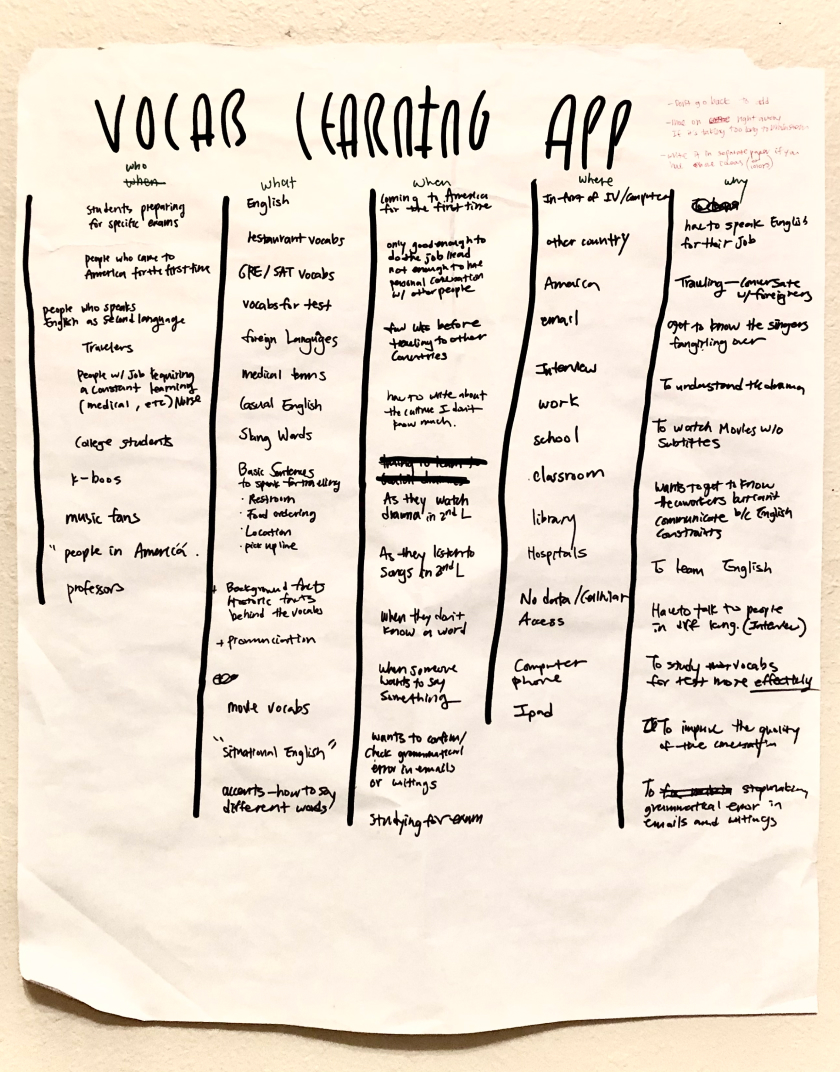 VOCAB LEARNING APP
- Don't go back to add
- Move on right arrow
If it's taking too long to
- Write it in separate paper if you
have other ideas (others)
who
when
Students preparing
for specific exams
people who came to
America for the first time
people who speaks
English as second language
Travelers
People w/ Job requiring
a constant learning
(medical, etc) Nurse
College students
k-boos
music fans
" people in America .
professors
what
English
restaurant vocabs
GRE/SAT vocabs
vocabs for test
foreign Languages
medical terms
Casual English
Slang Words
Basic Sentences
to speak for travelling
· Restroom
· Food ordering
· Location
· pick up line
+ Background facts
Historic facts
behind the vocabs
+ pronunciation
movie vocabs
"Situational English"
accents - how to say
different words
when
Coming to America
for the first time
only good enough to
do the job/read
not enough to have
personal conversation
w/ other people
few wks before
traveling to other
Countries
have to write about
the culture I don't
know much.
As they watch
drama in 2nd L
As they listen to
Songs in 2nd L
When they don't
know a word
when someone
wants to say
Something
wants to confirm/
Check grammatical
error in emails
or writings
Studying for exam
where
In-front of TV/Computer
other country
America
email
Interview
work
school
classroom
library
Hospitals
No data/Cellular
Access
Computer
phone
Ipad
why
have to speak English
for their Job
Traveling - Conversate
w/ foreigners
get to know the singers
fangirling over
To understand the drama
To watch Movies w/o
Subtitles
Wants to get to know
the coworkers but can't
communicate b/c English
Constraints
To learn English
Have to talk to people
in diff lang. (Interview)
To study vocabs
for test more effectively
To improve the quality
of the conversation
To stop making
grammatical error in
emails and writings